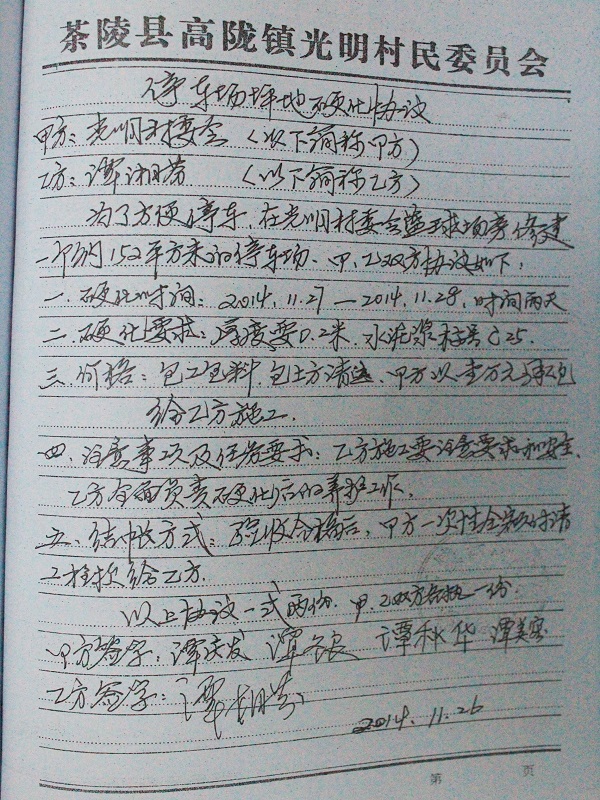 茶陵县高陇镇光明村民委员会
停车场坪地硬化协议
甲方：光明村委会（以下简称甲方）
乙方：谭湘芳（以下简称乙方）
为了方便停车，在光明村委会篮球场旁修建
一个约152平方米的停车场、甲、乙双方协议如下：
一、硬化时间：2014.11.27—2014.11.28，时间两天
二、硬化要求：厚度要0.2米，水泥浆标号C25.
三、价格：包工包料，包土方清运、甲方以壹万元承包
给乙方施工.
四、注意事项及任务要求：乙方施工要注意要求和安全、
乙方全面负责硬化后的养护工作.
五、结帐方式：验收合格后，甲方一次性全额付清
工程款给乙方.
以上协议一式两份、甲、乙双方各执一份.
甲方签字：谭庆发 谭 谭秋华 谭美容
乙方签字：谭湘芳
2014.11.26
第 页